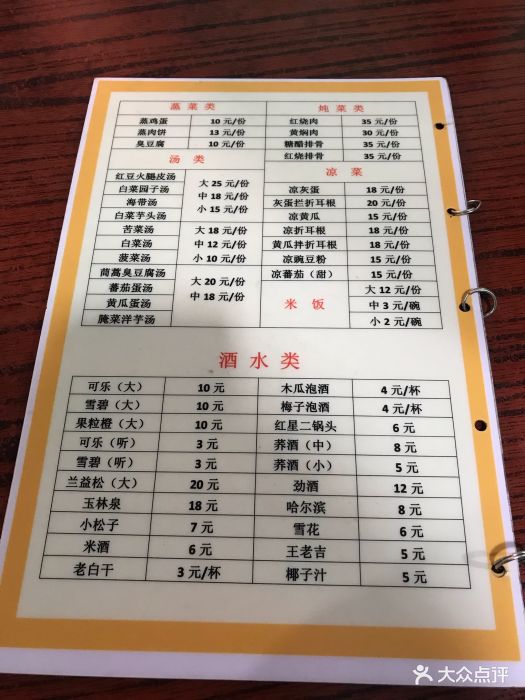 蒸菜类 炖菜类
蒸鸡蛋 10 元/份 红烧肉 35 元/份
蒸肉饼 13 元/份 黄焖肉 30 元/份
臭豆腐 10 元/份 糖醋排骨 35 元/份
汤类 红烧排骨 35 元/份
凉菜
红豆火腿皮汤 大 25 元/份
白菜园子汤 中 18 元/份 凉灰蛋 18 元/份
海带汤 小 15 元/份 灰蛋拦折耳根 20 元/份
白菜芋头汤 凉黄瓜 15 元/份
苦菜汤 大 18 元/份 凉折耳根 18 元/份
白菜汤 中 12 元/份 黄瓜拌折耳根 18 元/份
菠菜汤 小 10 元/份 凉豌豆粉 15 元/份
茼蒿臭豆腐汤 大 20 元/份 凉番茄（甜） 15 元/份
番茄蛋汤 中 18 元/份 米饭 大 12 元/份
黄瓜蛋汤 中 3 元/碗
腌菜洋芋汤 小 2 元/碗
酒水类
可乐（大） 10 元 木瓜泡酒 4 元/杯
雪碧（大） 10 元 梅子泡酒 4 元/杯
果粒橙（大） 10 元 红星二锅头 6 元
可乐（听） 3 元 荞酒（中） 8 元
雪碧（听） 3 元 荞酒（小） 5 元
兰益松（大） 20 元 劲酒 12 元
玉林泉 18 元 哈尔滨 8 元
小松子 7 元 雪花 6 元
米酒 6 元 王老吉 5 元
老白干 3 元/杯 椰子汁 5 元
大众点评